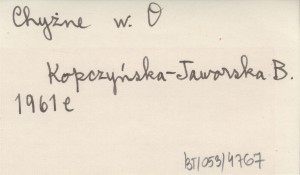 Chyżne w. O
Kopczyńska-Jaworska B.
1961 e
BJ/053/4767